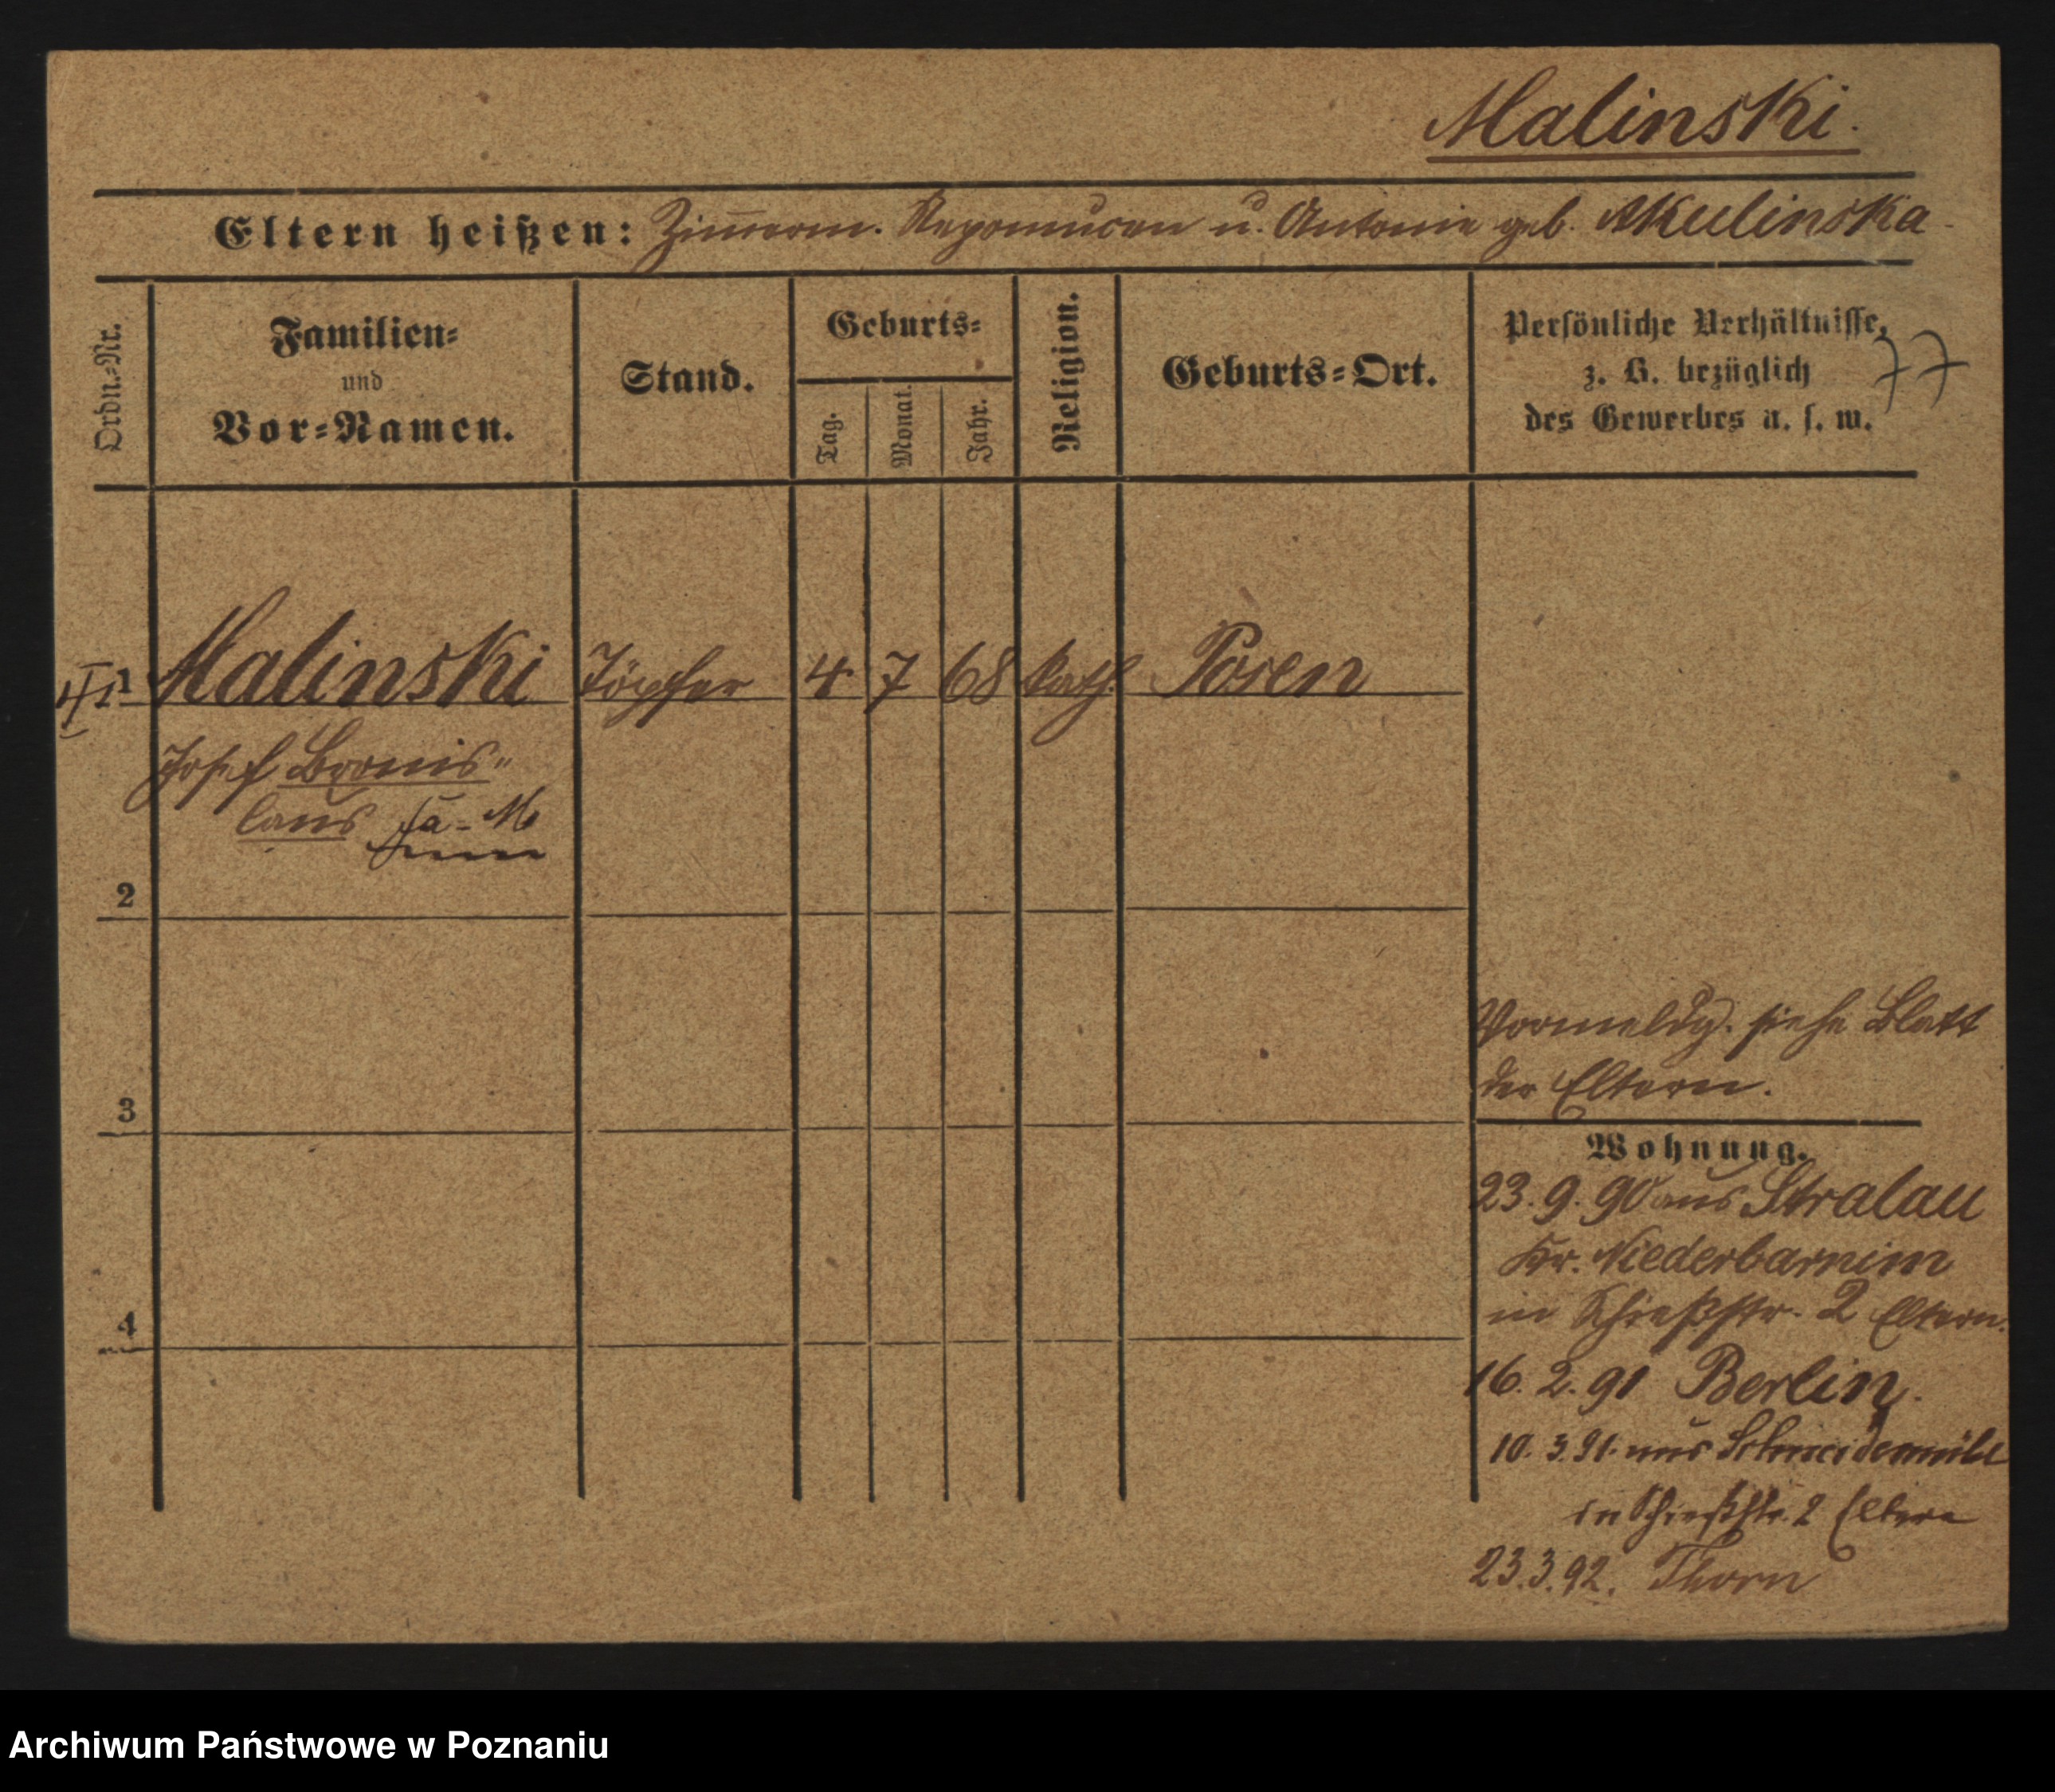 Malinski.
Eltern heißen: Zim̅erm. Nepomucen u. Antonie geb. Akulinska
Ordn.-Nr.
Familien-
und
Vor-Namen.
Stand.
Geburts-
Tag.
Monat.
Jahr.
Religion.
Geburts-Ort.
Persönliche Verhältnisse,
z. B. bezüglich
des Gewerbes u. s. w.
77
1 Malinski Töpfer 4 7 68 kath. Posen
Josef Bronis-
laus
2
3
4
Vormeldg. siehe Blatt
der Eltern.
Wohnung.
23.9.90 aus Stralau
Kr. Niederbarnim
in Schießstr. 2 Eltern.
16.2.91 Berlin.
10.3.91. aus Schneidemühl
in Schießstr. 2 Eltern
23.3.92. Thorn
Archiwum Państwowe w Poznaniu